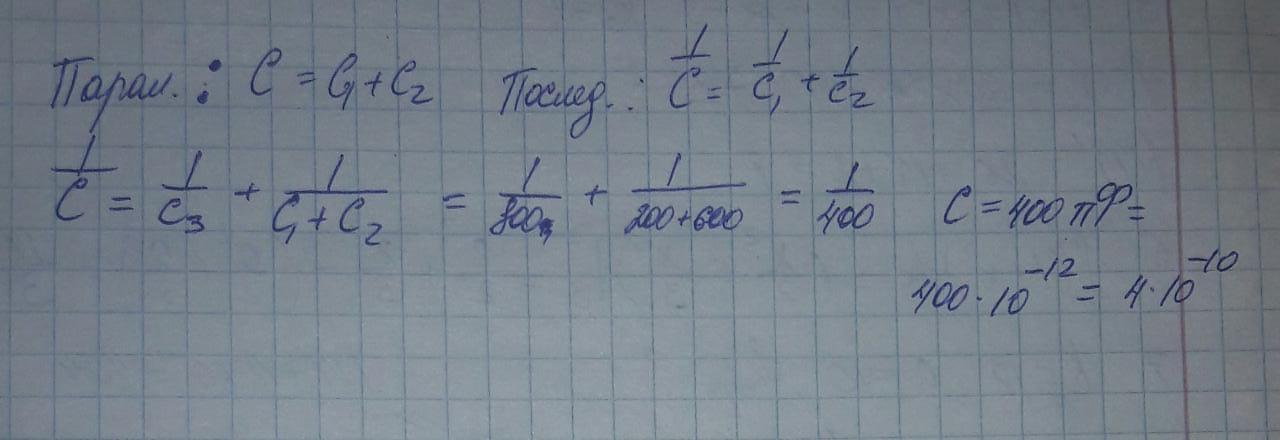 Парал.: C = C₁ + C₂ Послед.: 1/C = 1/C₁ + 1/C₂
1/C = 1/C₃ + 1/(C₁ + C₂) = 1/800 + 1/(200+600) = 1/400 C = 400 пФ =
400 · 10⁻¹² = 4 · 10⁻¹⁰